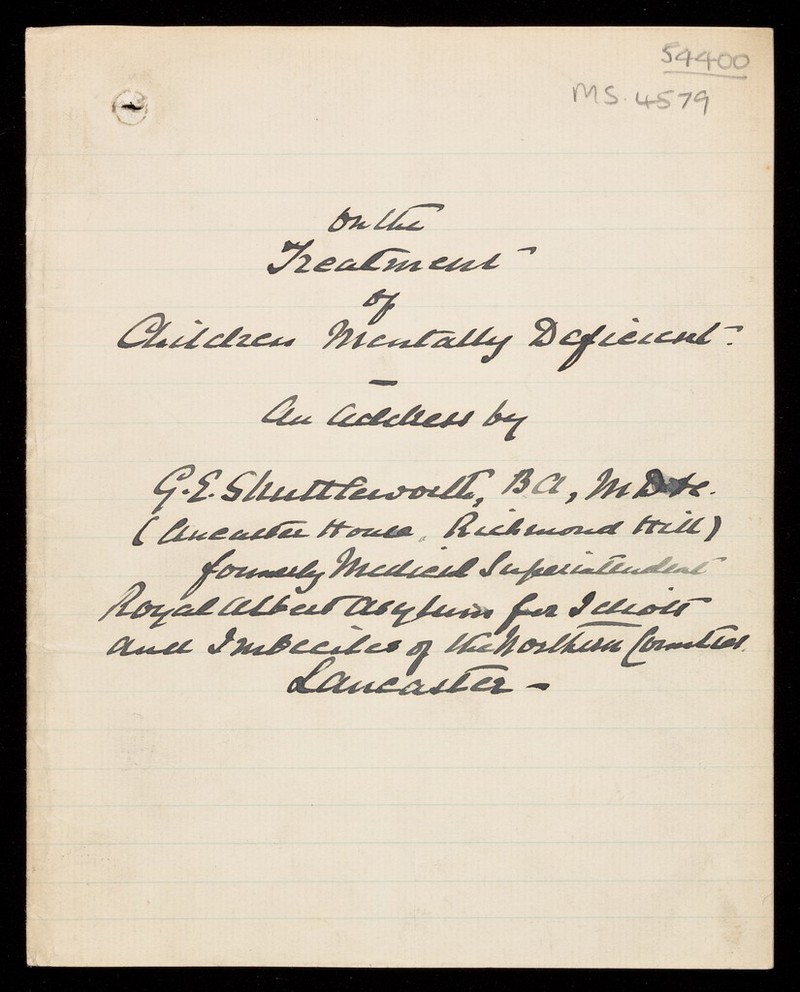 54400
MS. 4579
On the
Treatment
of
Children Mentally Deficient.
An Address by
G. E. Shuttleworth, BA, MD &c.
(Ancaster House, Richmond Hill)
formerly Medical Superintendent
Royal Albert Asylum for Idiots
and Imbeciles of the Northern Counties.
Lancaster –